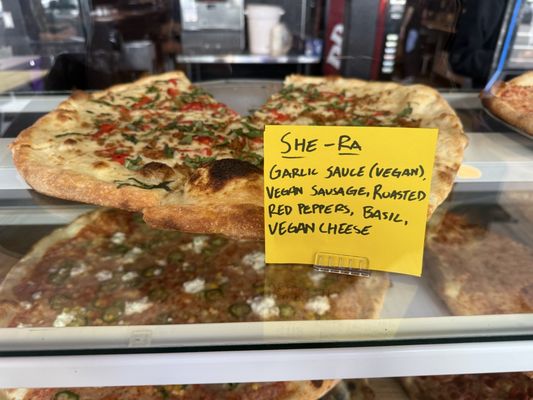 SHE-RA
GARLIC SAUCE (VEGAN),
VEGAN SAUSAGE, ROASTED
RED PEPPERS, BASIL,
VEGAN CHEESE